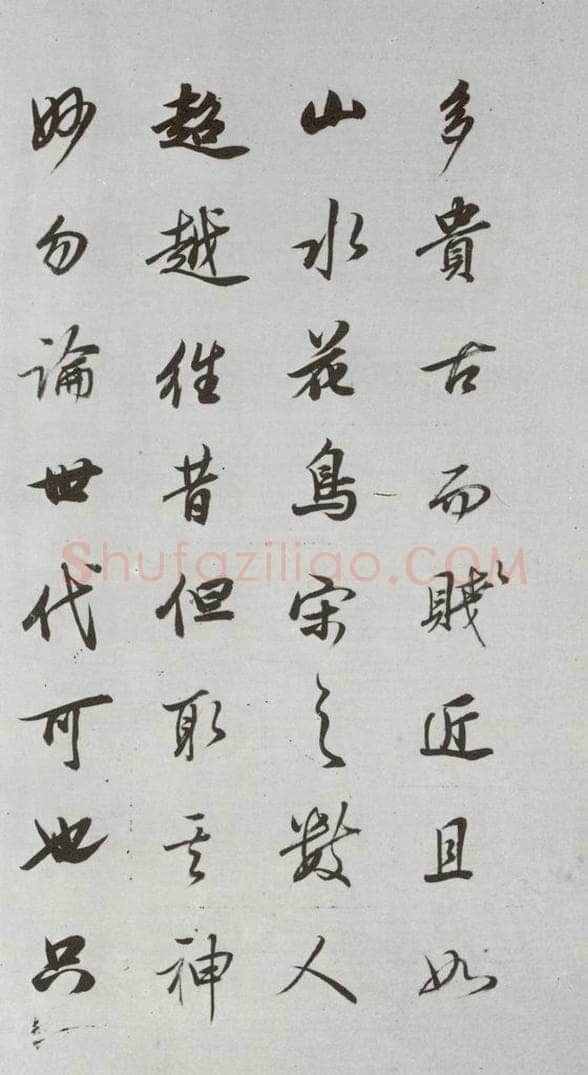 多貴古而賤近且如
山水花鳥宋之數人
超越往昔但取其神
妙勿論世代可也只
Shufaziliao.COM